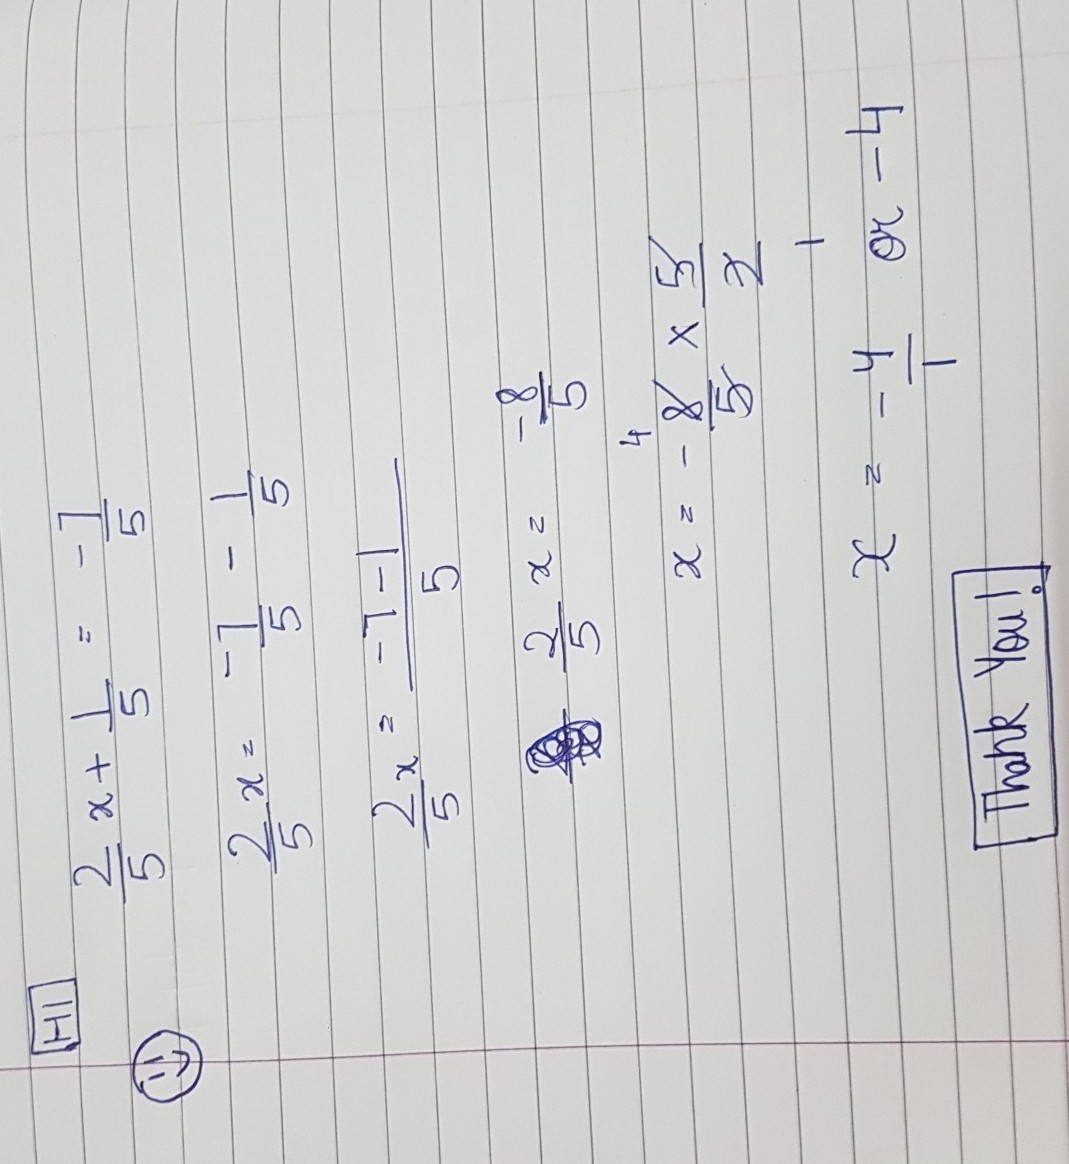 HI
2/5 x + 1/5 = -7/5
2/5 x = -7/5 - 1/5
2/5 x = -7-1/5
2/5 x = -8/5
x = - 8/5 × 5/2 4 1
x = -4/1 or -4
Thank You!